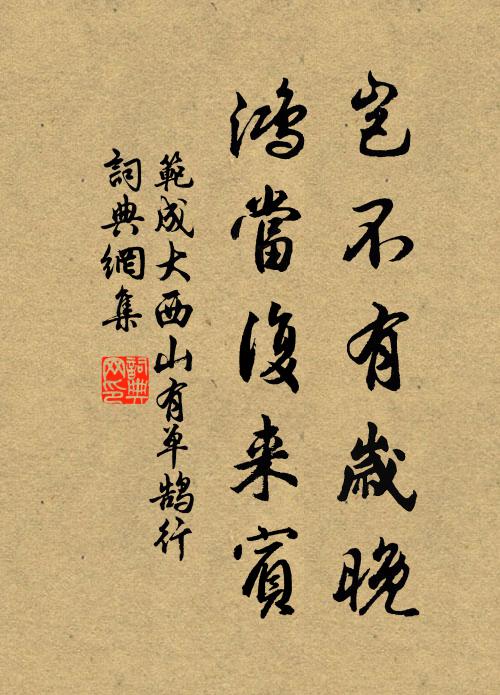 豈不有歲晚
鴻當復来賓
範成大西山有单鵠行
詞典網集
詞典
网印